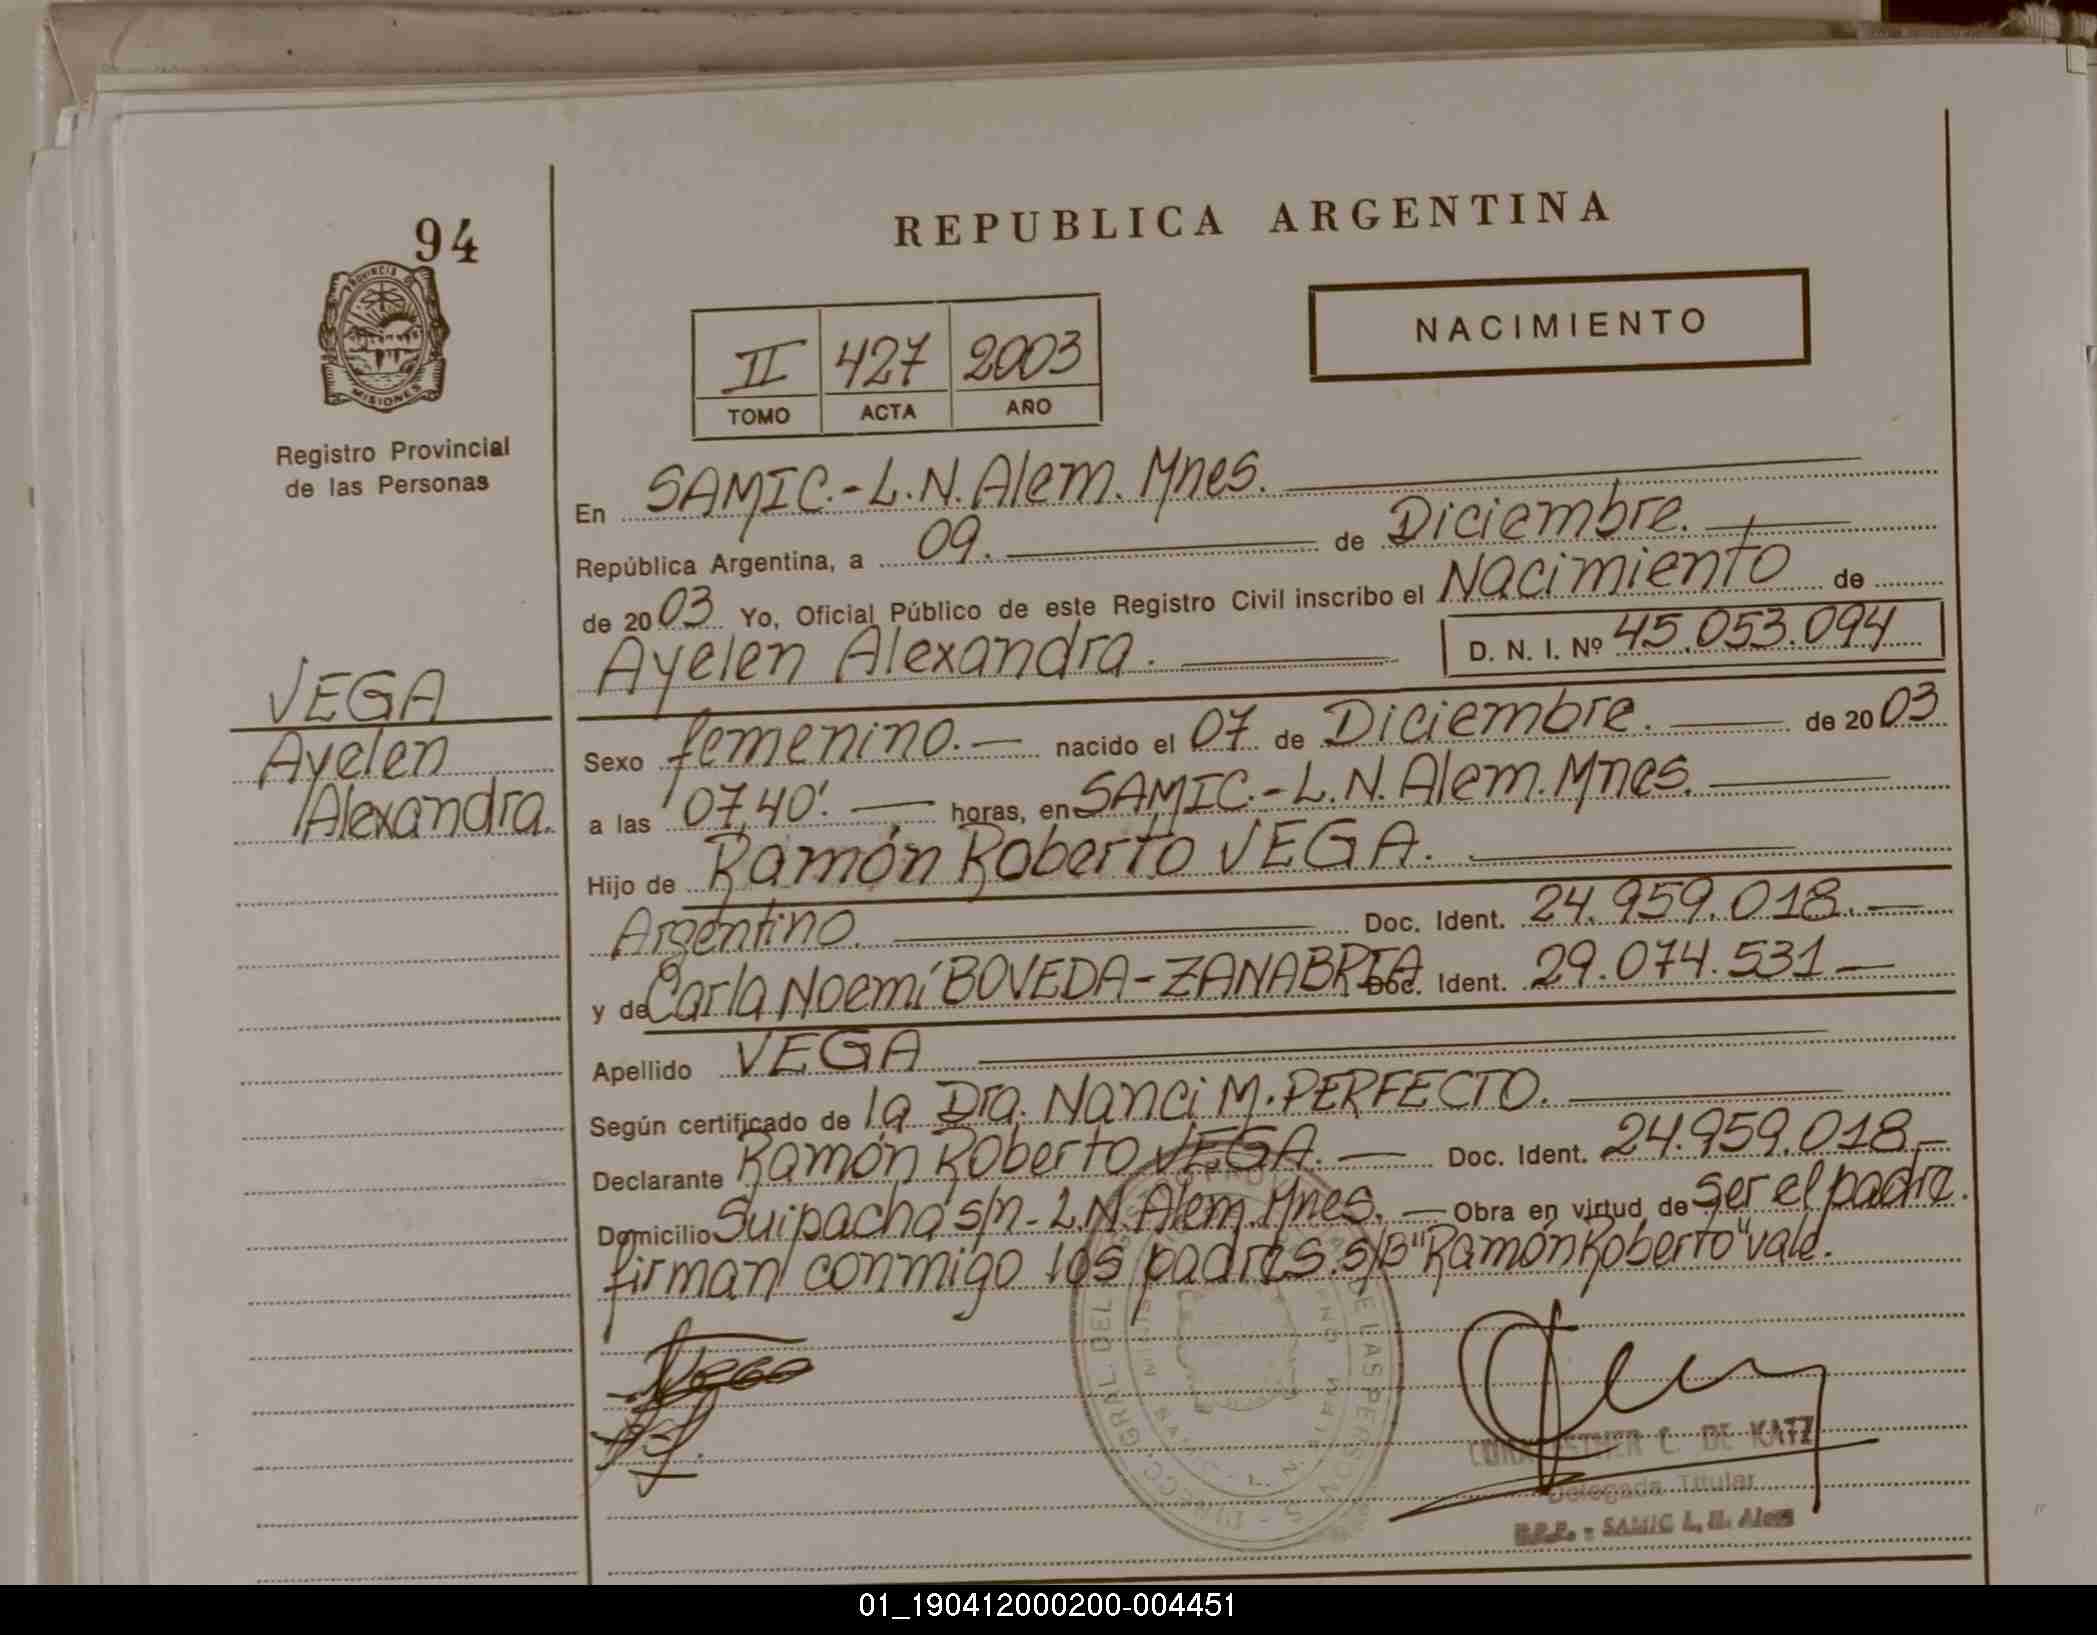 REPUBLICA ARGENTINA
94
PROVINCIA DE
MISIONES
NACIMIENTO
II 427 2003
TOMO ACTA AÑO
Registro Provincial
de las Personas
En SAMIC.-L.N.Alem.Mnes.
República Argentina, a 09. de Diciembre.
de 2003 Yo, Oficial Público de este Registro Civil inscribo el Nacimiento de
Ayelen Alexandra. D. N. I. Nº 45.053.094
VEGA
Ayelen
Alexandra.
Sexo femenino.- nacido el 07 de Diciembre. de 2003
a las 07,40'. horas, en SAMIC.-L.N.Alem.Mnes.
Hijo de Ramón Roberto VEGA.
Argentino. Doc. Ident. 24.959.018.-
y de Carla Noemí BOVEDA-ZANABRIA Doc. Ident. 29.074.531-
Apellido VEGA
Según certificado de la Dra. Nanci M. PERFECTO.
Declarante Ramón Roberto VEGA.- Doc. Ident. 24.959.018.-
Domicilio Suipacha s/n-L.N.Alem.Mnes.- Obra en virtud de ser el padre.
firman conmigo los padres.s/B"Ramón Roberto"vale.
Vega
DIRECC. GRAL. DEL DE LAS PERSONAS
ESTHER C. DE KATZ
Delegada Titular
R.P.P. - SAMIC L. N. Alem
01_190412000200-004451